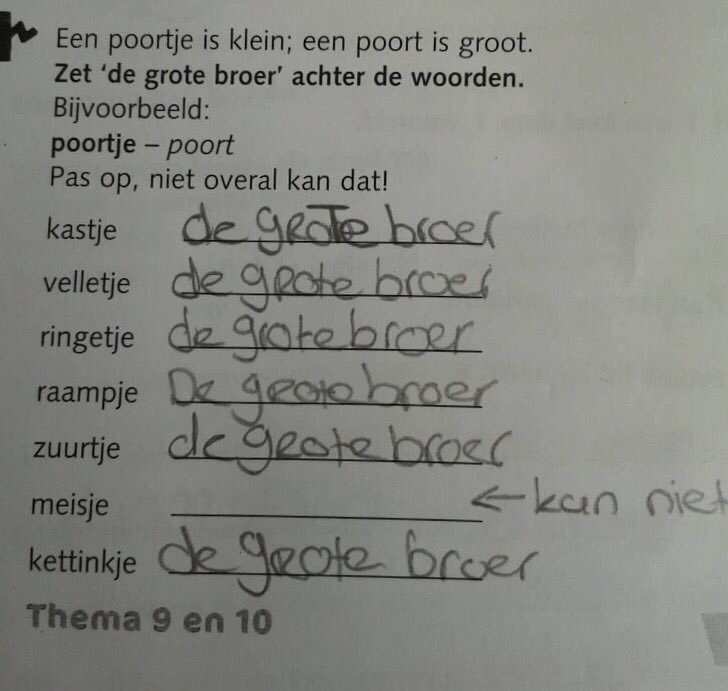 Een poortje is klein; een poort is groot.
Zet 'de grote broer' achter de woorden.
Bijvoorbeeld:
poortje – poort
Pas op, niet overal kan dat!
kastje de grote broer
velletje de grote broer
ringetje de grote broer
raampje De grote broer
zuurtje de grote broer
meisje ← kan niet
kettinkje de grote broer
Thema 9 en 10